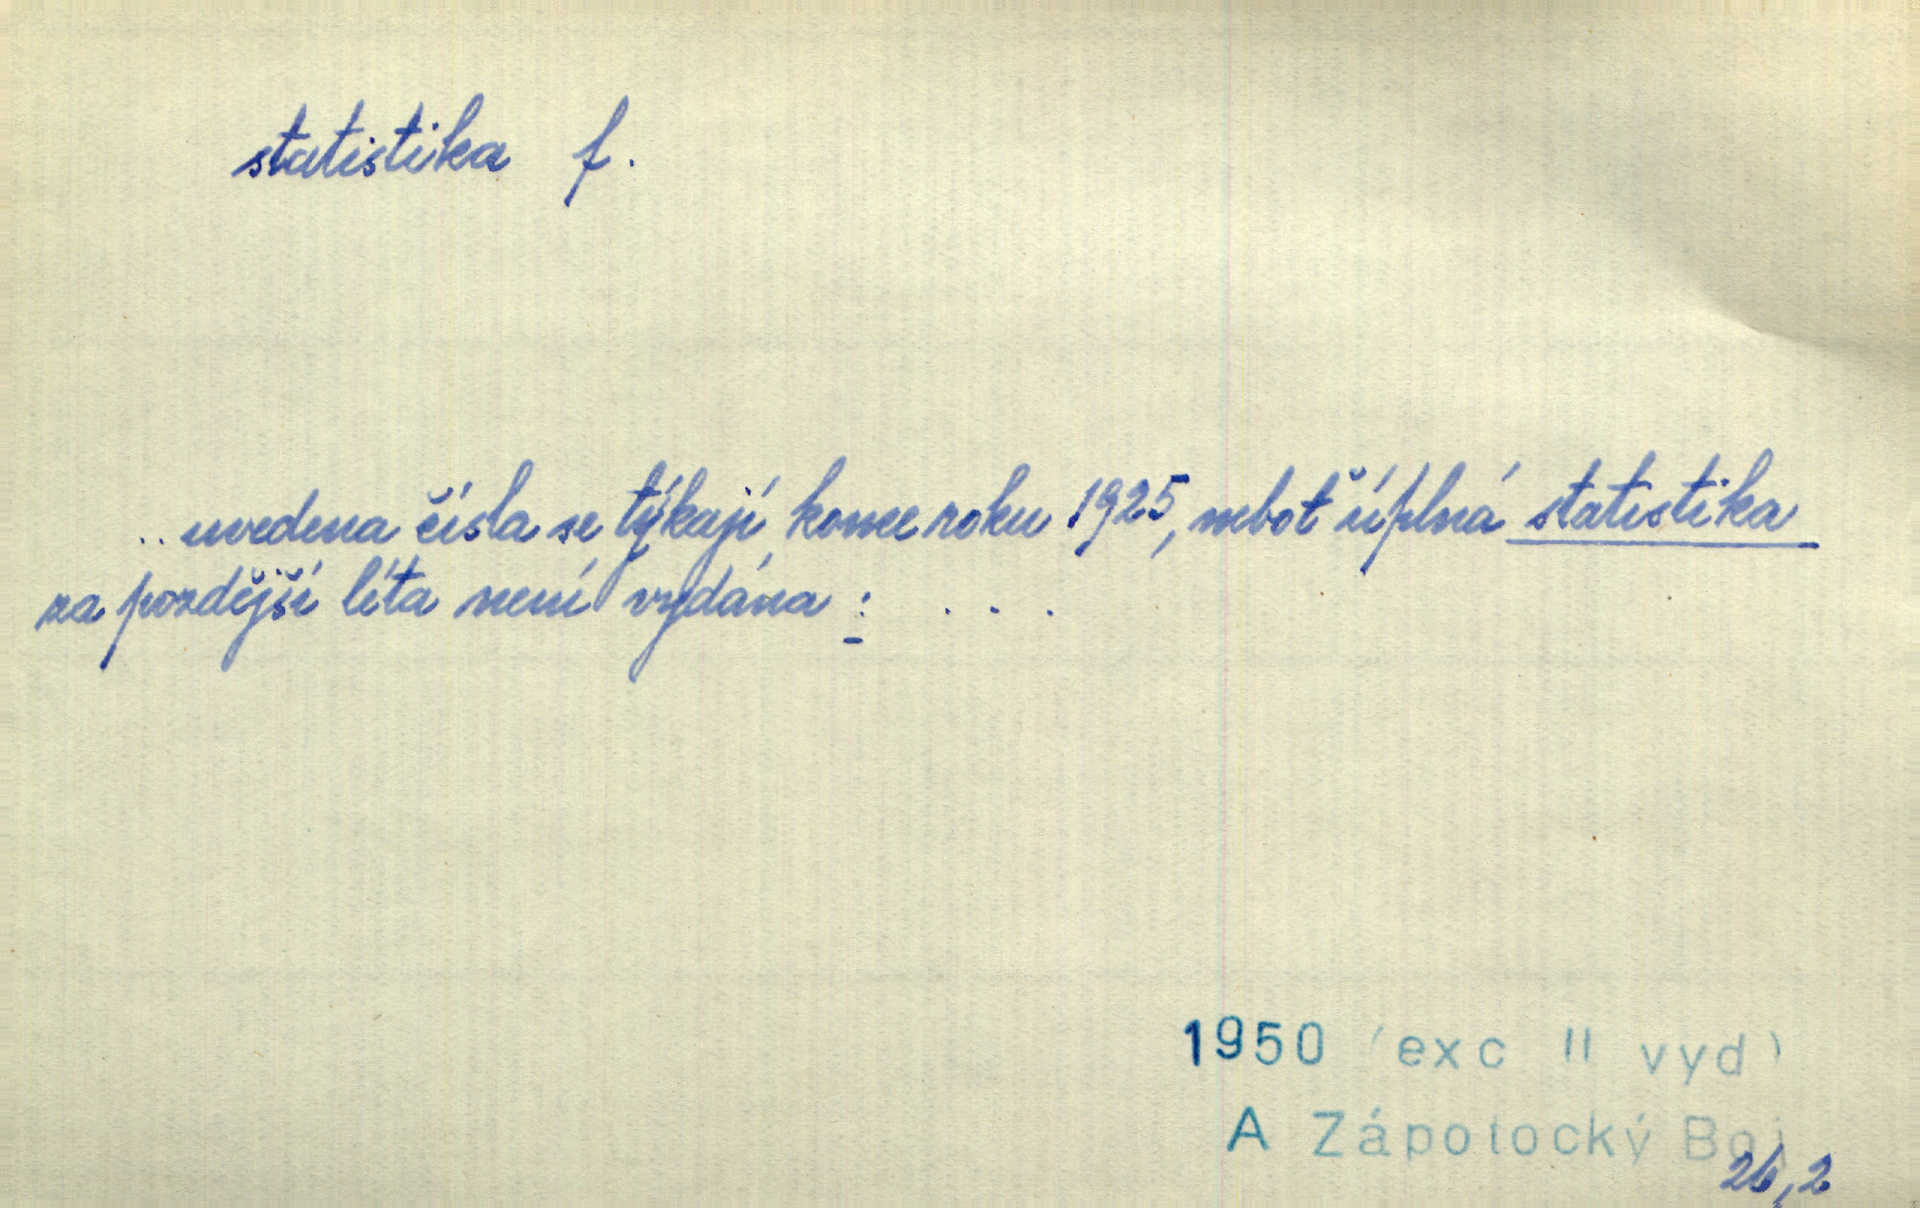 statistika f.
.. uvedena čísla se týkají konce roku 1925, neboť úplná statistika
za pozdější léta není vydána : . . .
1950 (exc II vyd)
A Zápotocký Boj
26,2